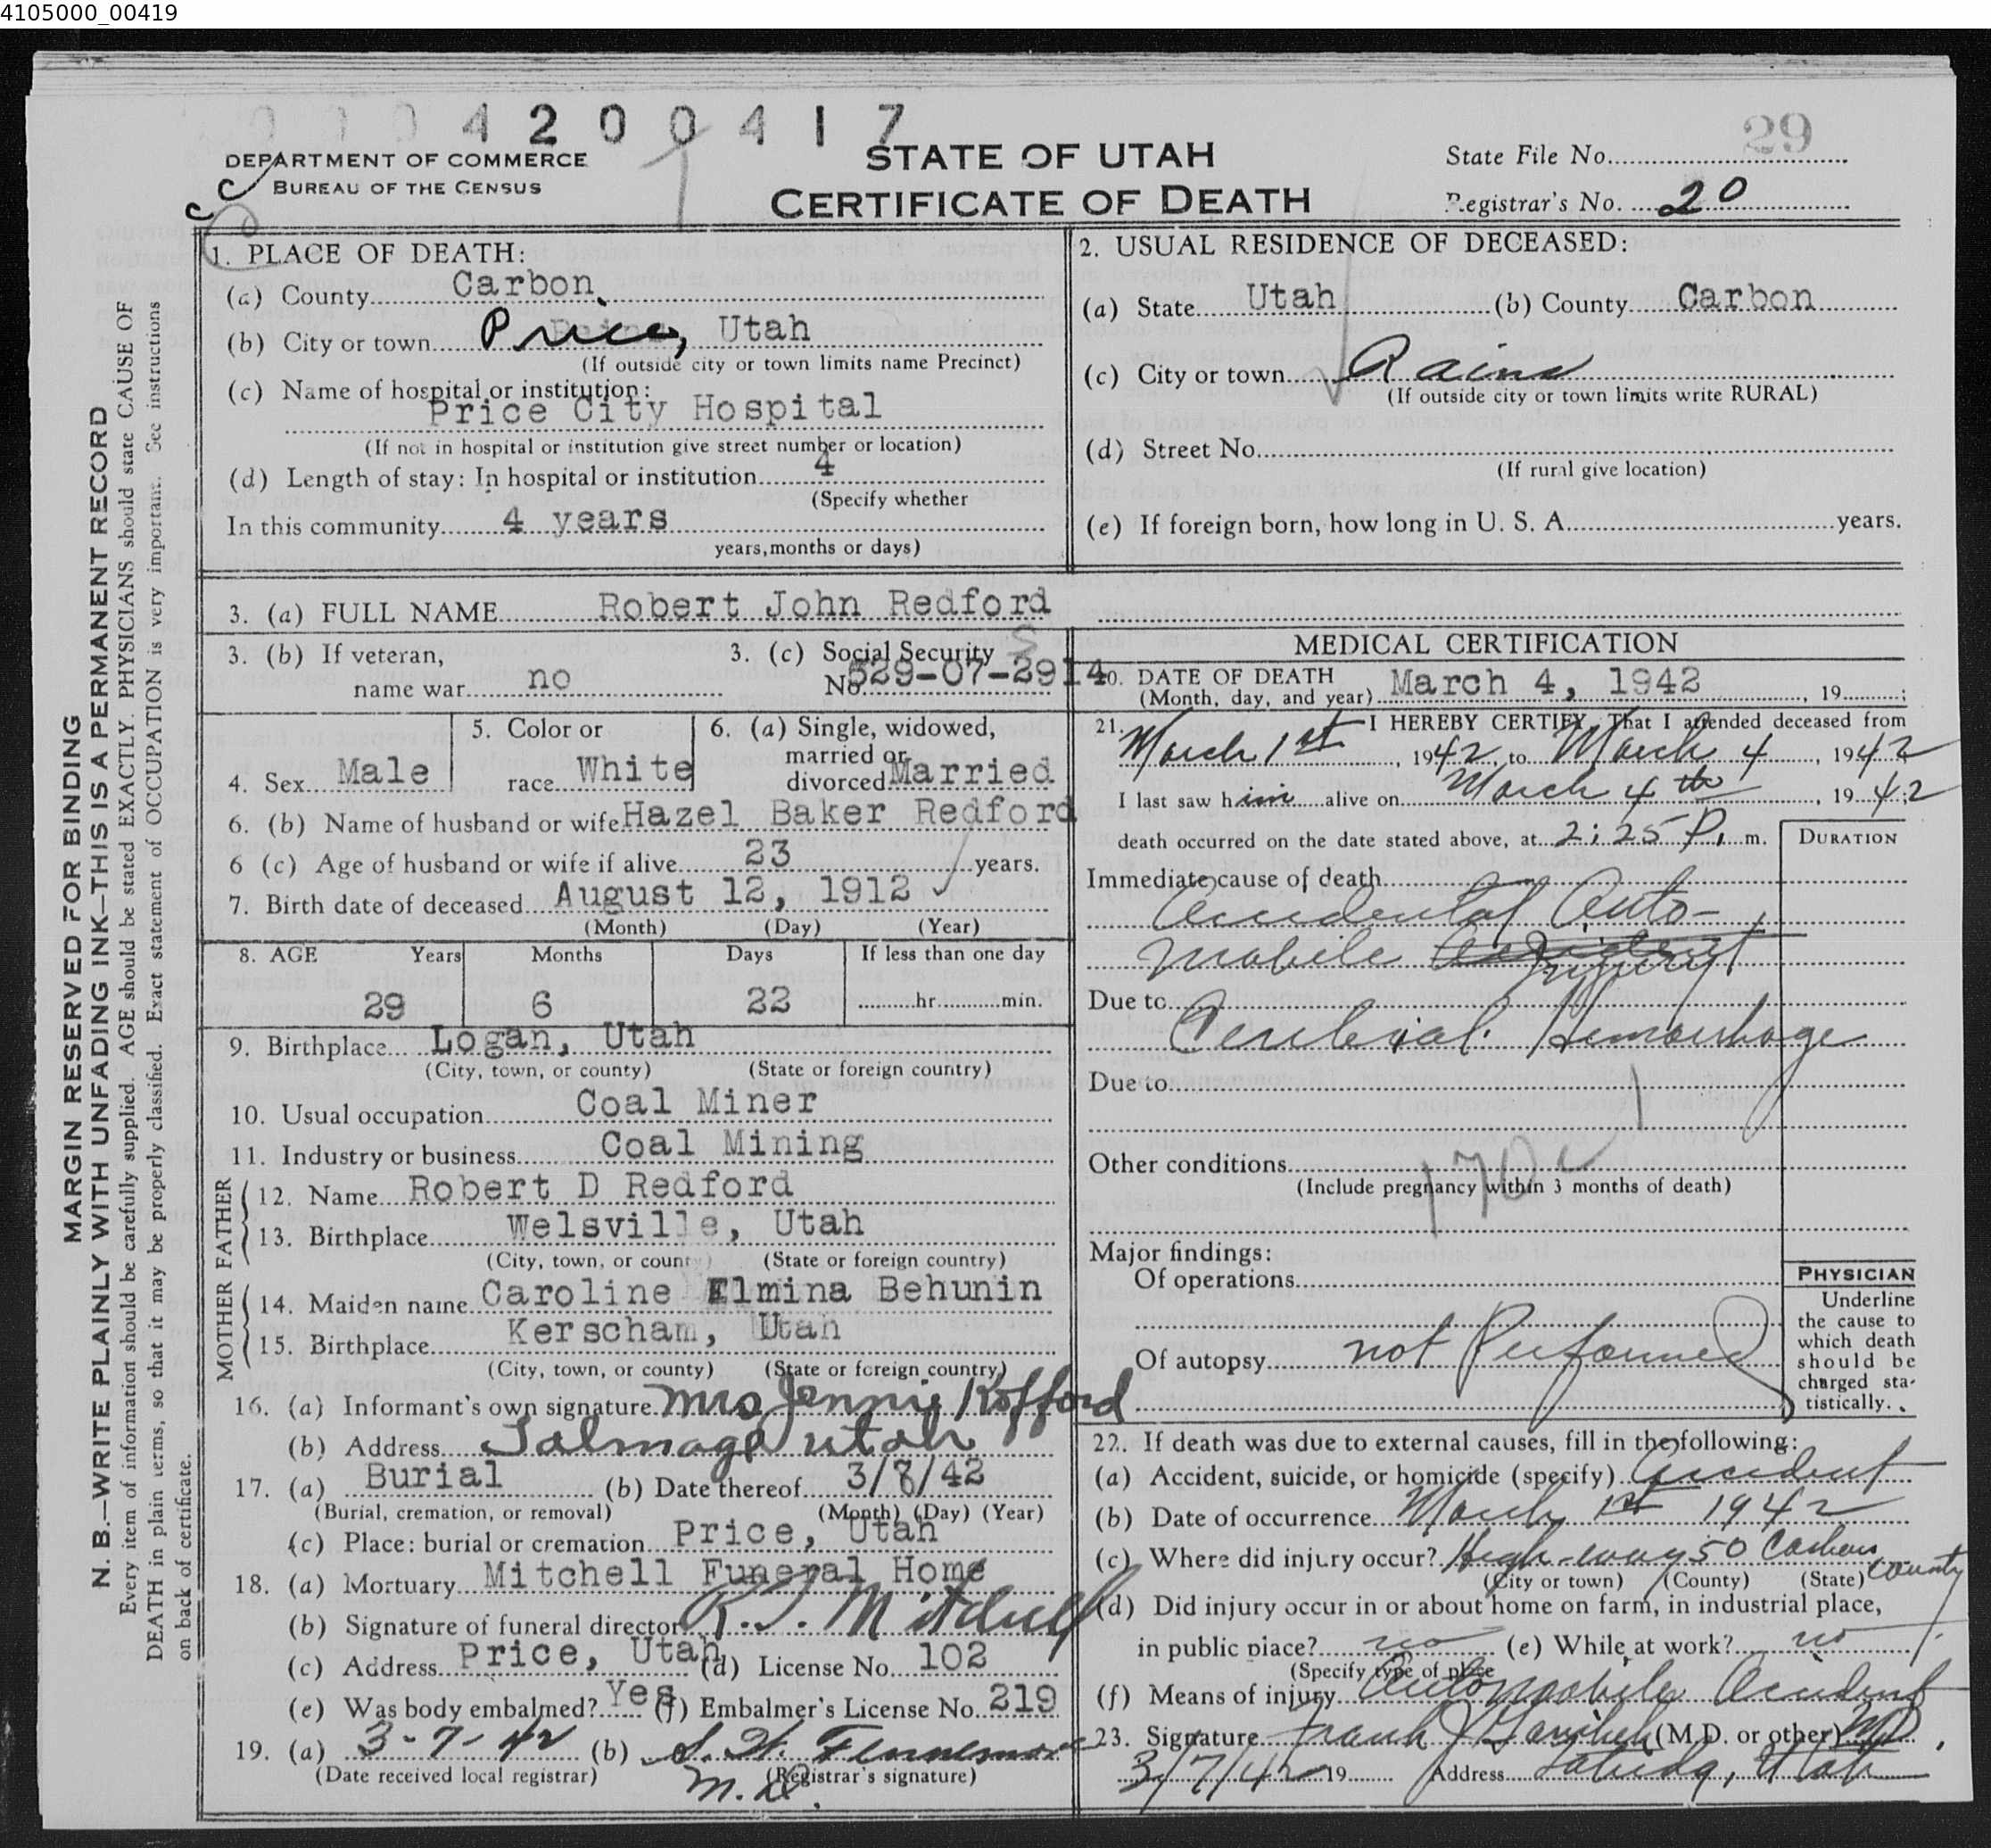 4105000_00419
4 2 0 0 4 1 7
29
DEPARTMENT OF COMMERCE
BUREAU OF THE CENSUS
STATE OF UTAH
CERTIFICATE OF DEATH
State File No.
Registrar's No. 20
MARGIN RESERVED FOR BINDING
N. B.—WRITE PLAINLY WITH UNFADING INK—THIS IS A PERMANENT RECORD
Every item of information should be carefully supplied. AGE should be stated EXACTLY. PHYSICIANS should state CAUSE OF
DEATH in plain terms, so that it may be properly classified. Exact statement of OCCUPATION is very important. See instructions
on back of certificate.
1. PLACE OF DEATH:
(a) County Carbon
(b) City or town Price, Utah
(If outside city or town limits name Precinct)
(c) Name of hospital or institution:
Price City Hospital
(If not in hospital or institution give street number or location)
(d) Length of stay: In hospital or institution 4
(Specify whether
In this community 4 years
years, months or days)
2. USUAL RESIDENCE OF DECEASED:
(a) State Utah (b) County Carbon
(c) City or town Rains
(If outside city or town limits write RURAL)
(d) Street No.
(If rural give location)
(e) If foreign born, how long in U. S. A. years.
3. (a) FULL NAME Robert John Redford
3. (b) If veteran,
name war no
3. (c) Social Security
No. 529-07-2914
4. Sex Male
5. Color or
race White
6. (a) Single, widowed,
married or
divorced Married
6. (b) Name of husband or wife Hazel Baker Redford
6 (c) Age of husband or wife if alive 23 years.
7. Birth date of deceased August 12, 1912
(Month) (Day) (Year)
8. AGE Years Months Days If less than one day
29 6 22 hr. min.
9. Birthplace Logan, Utah
(City, town, or county) (State or foreign country)
10. Usual occupation Coal Miner
11. Industry or business Coal Mining
FATHER
12. Name Robert D Redford
13. Birthplace Welsville, Utah
(City, town, or county) (State or foreign country)
MOTHER
14. Maiden name Caroline Elmina Behunin
15. Birthplace Kerscham, Utah
(City, town, or county) (State or foreign country)
16. (a) Informant's own signature Mrs Jennie Kofford
(b) Address Talmage Utah
17. (a) Burial (b) Date thereof 3/8/42
(Burial, cremation, or removal) (Month) (Day) (Year)
(c) Place: burial or cremation Price, Utah
18. (a) Mortuary Mitchell Funeral Home
(b) Signature of funeral director Mitchell
(c) Address Price, Utah (d) License No. 102
(e) Was body embalmed? Yes (f) Embalmer's License No. 219
19. (a) 3-7-42 (b)
(Date received local registrar) (Registrar's signature)
M. D.
MEDICAL CERTIFICATION
20. DATE OF DEATH
(Month, day, and year) March 4, 1942, 19 ;
21. I HEREBY CERTIFY, That I attended deceased from
March 1st, 1942, to March 4, 1942
I last saw him alive on March 4th, 1942
death occurred on the date stated above, at 2:25 P. m.
DURATION
Immediate cause of death
Accidental Auto-
mobile Accident Injury
Due to
Cerebral Hemorrhage
Due to
Other conditions 170c
(Include pregnancy within 3 months of death)
Major findings:
Of operations
Of autopsy not Performed
PHYSICIAN
Underline
the cause to
which death
should be
charged sta-
tistically.
22. If death was due to external causes, fill in the following:
(a) Accident, suicide, or homicide (specify) Accident
(b) Date of occurrence March 1st 1942
(c) Where did injury occur? High-way 50 County
(City or town) (County) (State)
(d) Did injury occur in or about home on farm, in industrial place,
in public place? no (e) While at work? no
(Specify type of place
(f) Means of injury Automobile Accident
23. Signature Frank J (M.D. or other) MD.
3/7/42 19 Address Utah